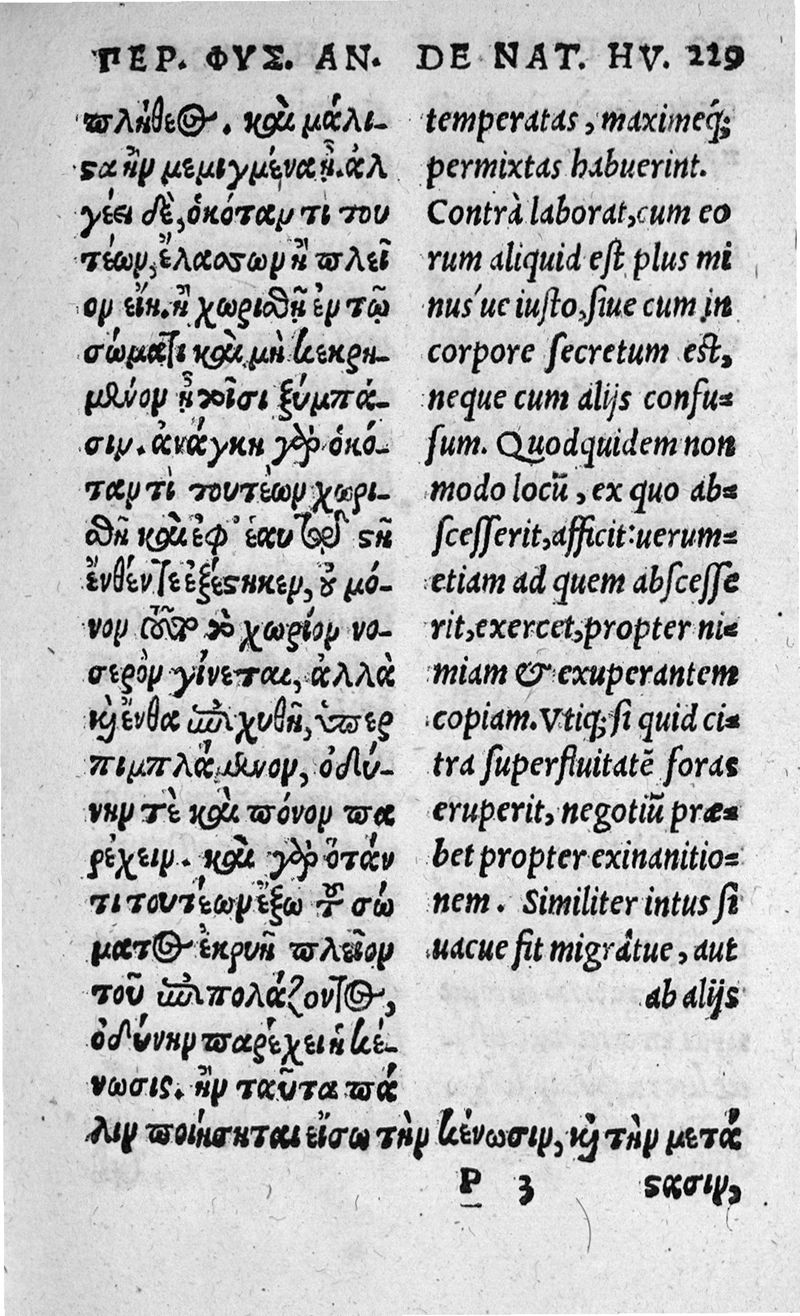 ΠΕΡ. ΦΥΣ. ΑΝ. DE NAT. HV. 229
πλήθεος. καὶ μάλι-
ϛα ἢν μεμιγμένα ᾖ. ἀλ
γέει δὲ, ὁκόταν τι του
τέων, ἔλασσων ἢ πλεῖ
ον εἴη. ἢ χωριθῇ ἐν τῷ
σώματι καὶ μὴ κεκρη-
μένον ᾖ τοῖσι ξύμπα-
σιν. ἀνάγκη γὰρ ὁκό-
ταν τὶ τουτέων χωρι-
θῇ καὶ ἐφ' ἑαυτοῦ ϛῇ
ἔνθέν τε ἐξέϛηκεν, οὐ μό-
νον τοῦτο τὸ χωρίον νο-
σερὸν γίνεται, ἀλλὰ
καὶ ἔνθα ἐπιχυθῇ, ὑπερ
πιμπλάμενον, ὀδύ-
νην τὲ καὶ πόνον πα
ρέχειν. καὶ γὰρ ὅτάν
τι τουτέων ἔξω τοῦ σώ
ματος ἐκρυῇ πλεῖον
τοῦ ἐπιπολάζοντος,
ὀδύνην παρέχει ἡ κέ-
νωσις. ἢν ταῦτα πά
λιν ποιήσηται εἴσω τὴν κένωσιν, καὶ τὴν μετά
temperatas, maximeq́;
permixtas habuerint.
Contrà laborat, cum eo
rum aliquid est plus mi
nus'ue iusto, siue cum in
corpore secretum est,
neque cum alijs confu-
sum. Quodquidem non
modo locū, ex quo ab-
scesserit, afficit: uerum-
etiam ad quem abscesse
rit, exercet, propter ni-
miam & exuperantem
copiam. Vtiq; si quid ci-
tra superfluitatē foras
eruperit, negotiū præ-
bet propter exinanitio-
nem. Similiter intus si
uacue fit migrátue, aut
ab alijs
P 3 ϛασιν,